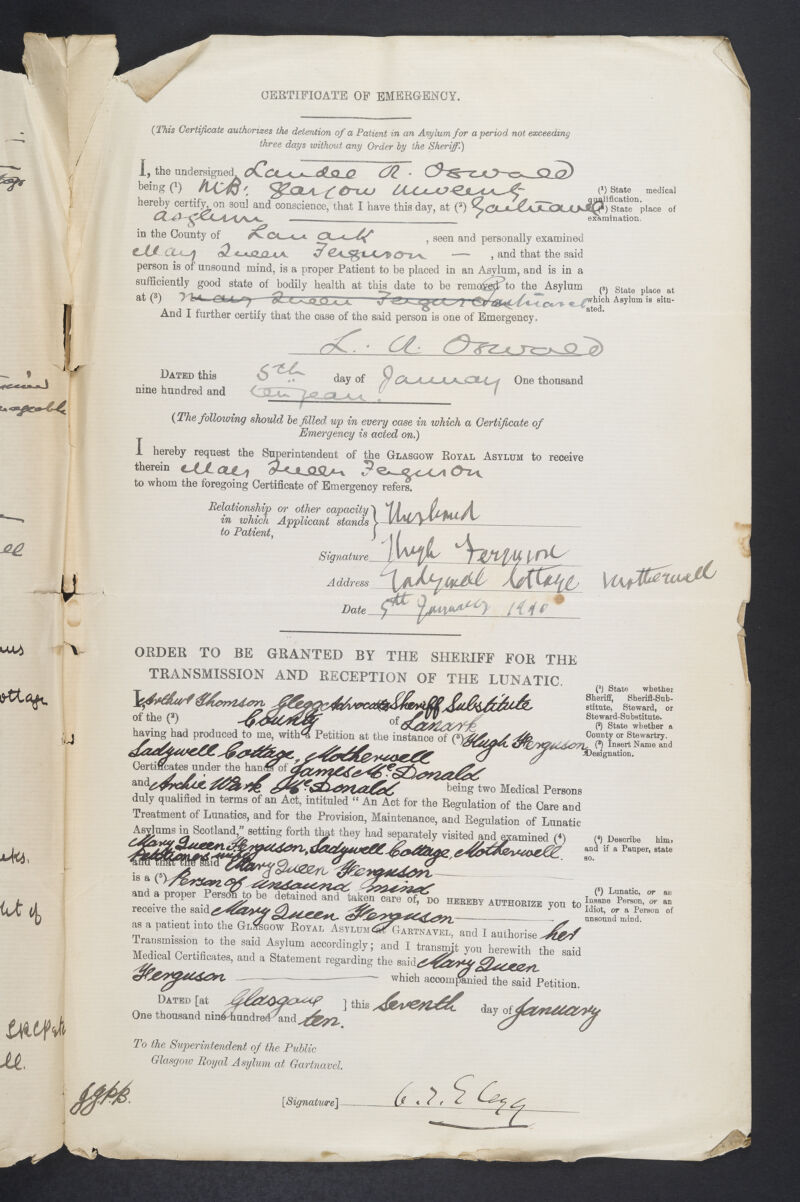 CERTIFICATE OF EMERGENCY.
(This Certificate authorizes the detention of a Patient in an Asylum for a period not exceeding
three days without any Order by the Sheriff.)
I, the undersigned, Landel R. Oswald
being (1) M.B. Glasgow University
(1) State medical
qualification.
hereby certify, on soul and conscience, that I have this day, at (2) Gartnavel
(2) State place of
examination.
asylum
in the County of Lanark, seen and personally examined
Mary Queen Ferguson —, and that the said
person is of unsound mind, is a proper Patient to be placed in an Asylum, and is in a
sufficiently good state of bodily health at this date to be removed to the Asylum
at (3) Mary Queen Ferguson Gartnavel
(3) State place at
which Asylum is situ-
ated.
And I further certify that the case of the said person is one of Emergency.
L. R. Oswald
DATED this 5th day of January One thousand
nine hundred and ten
(The following should be filled up in every case in which a Certificate of
Emergency is acted on.)
I hereby request the Superintendent of the GLASGOW ROYAL ASYLUM to receive
therein Mary Queen Ferguson
to whom the foregoing Certificate of Emergency refers.
Relationship or other capacity
in which Applicant stands
to Patient, } Husband
Signature Hugh Ferguson
Address Ladywell Cottage Motherwell
Date 5th January 1910
ORDER TO BE GRANTED BY THE SHERIFF FOR THE
TRANSMISSION AND RECEPTION OF THE LUNATIC.
I, Arthur Thomson Clegg Advocate Sheriff Substitute
(1) State whether
Sheriff, Sheriff-Sub-
stitute, Steward, or
Steward-Substitute.
of the (2) County of Lanark
(2) State whether a
County or Stewartry.
having had produced to me, with a Petition at the instance of (3) Hugh Ferguson,
(3) Insert Name and
Designation.
Ladywell Cottage, Motherwell
Certificates under the hands of James McDonald
and Archie Wark McDonald being two Medical Persons
duly qualified in terms of an Act, intituled "An Act for the Regulation of the Care and
Treatment of Lunatics, and for the Provision, Maintenance, and Regulation of Lunatic
Asylums in Scotland," setting forth that they had separately visited and examined (4)
(4) Describe him,
and if a Pauper, state
so.
Mary Queen Ferguson, Ladywell Cottage, Motherwell.
Petitioner's wife
and that the said Mary Queen Ferguson
is a (5) Person of unsound mind
(5) Lunatic, or an
Insane Person, or an
Idiot, or a Person of
unsound mind.
and a proper Person to be detained and taken care of, DO HEREBY AUTHORIZE you to
receive the said Mary Queen Ferguson
as a patient into the GLASGOW ROYAL ASYLUM at GARTNAVEL, and I authorise her
Transmission to the said Asylum accordingly; and I transmit you herewith the said
Medical Certificates, and a Statement regarding the said Mary Queen
Ferguson which accompanied the said Petition.
DATED [at Glasgow ] this Seventh day of January
One thousand nine hundred and ten.
To the Superintendent of the Public
Glasgow Royal Asylum at Gartnavel.
[Signature] A. T. Clegg